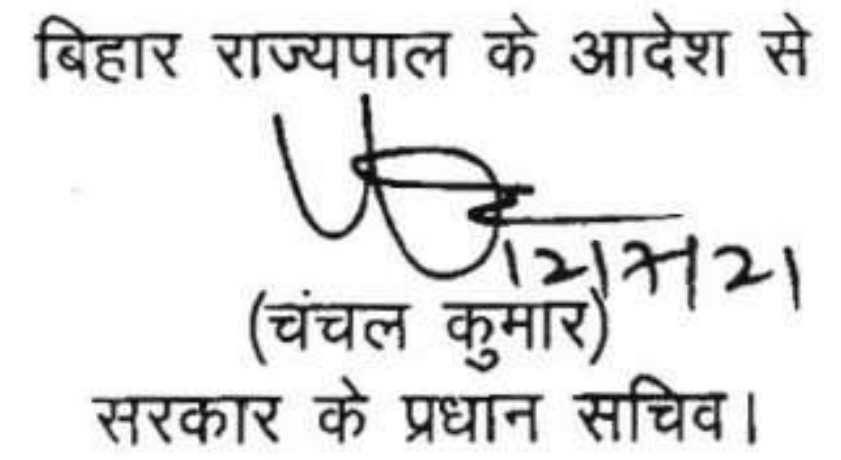 बिहार राज्यपाल के आदेश से
(चंचल कुमार)
सरकार के प्रधान सचिव।